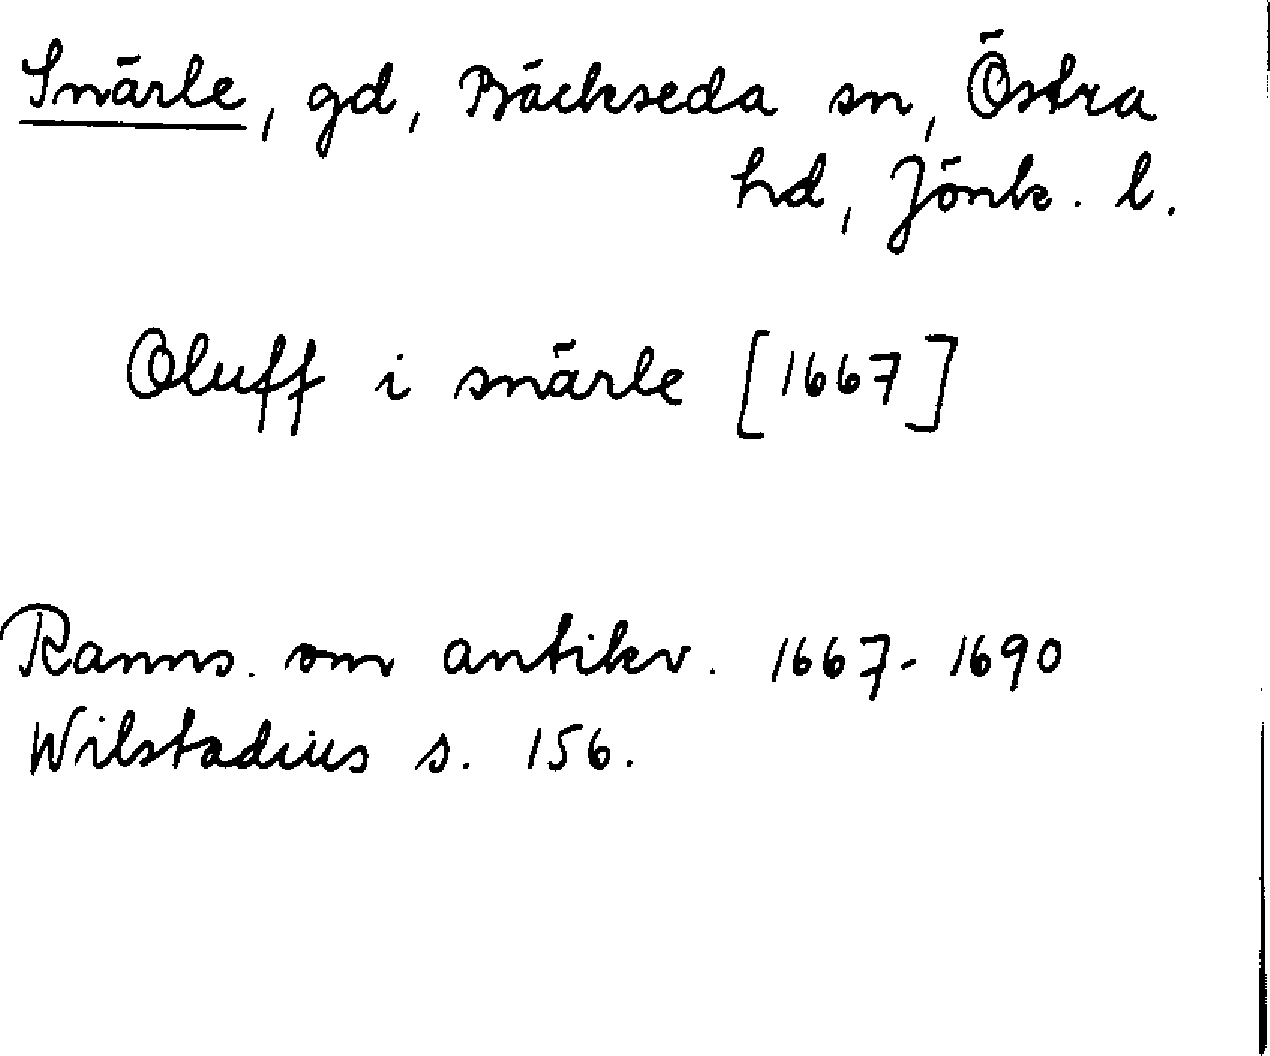 Snärle, gd, Bäckseda sn, Östra
hd, Jönk. l.
Oluff i snärle [1667]
Ranns. om antikv. 1667-1690
Wilstadius s. 156.